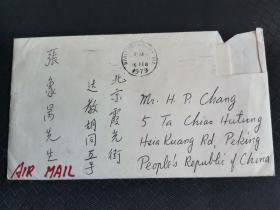 北京霞光街
达教胡同五号
張象昺先生
AIR MAIL
1973
Mr. H. P. Chang
5 Ta Chiao Hutung
Hsia Kuang Rd, Peking
People's Republic of China